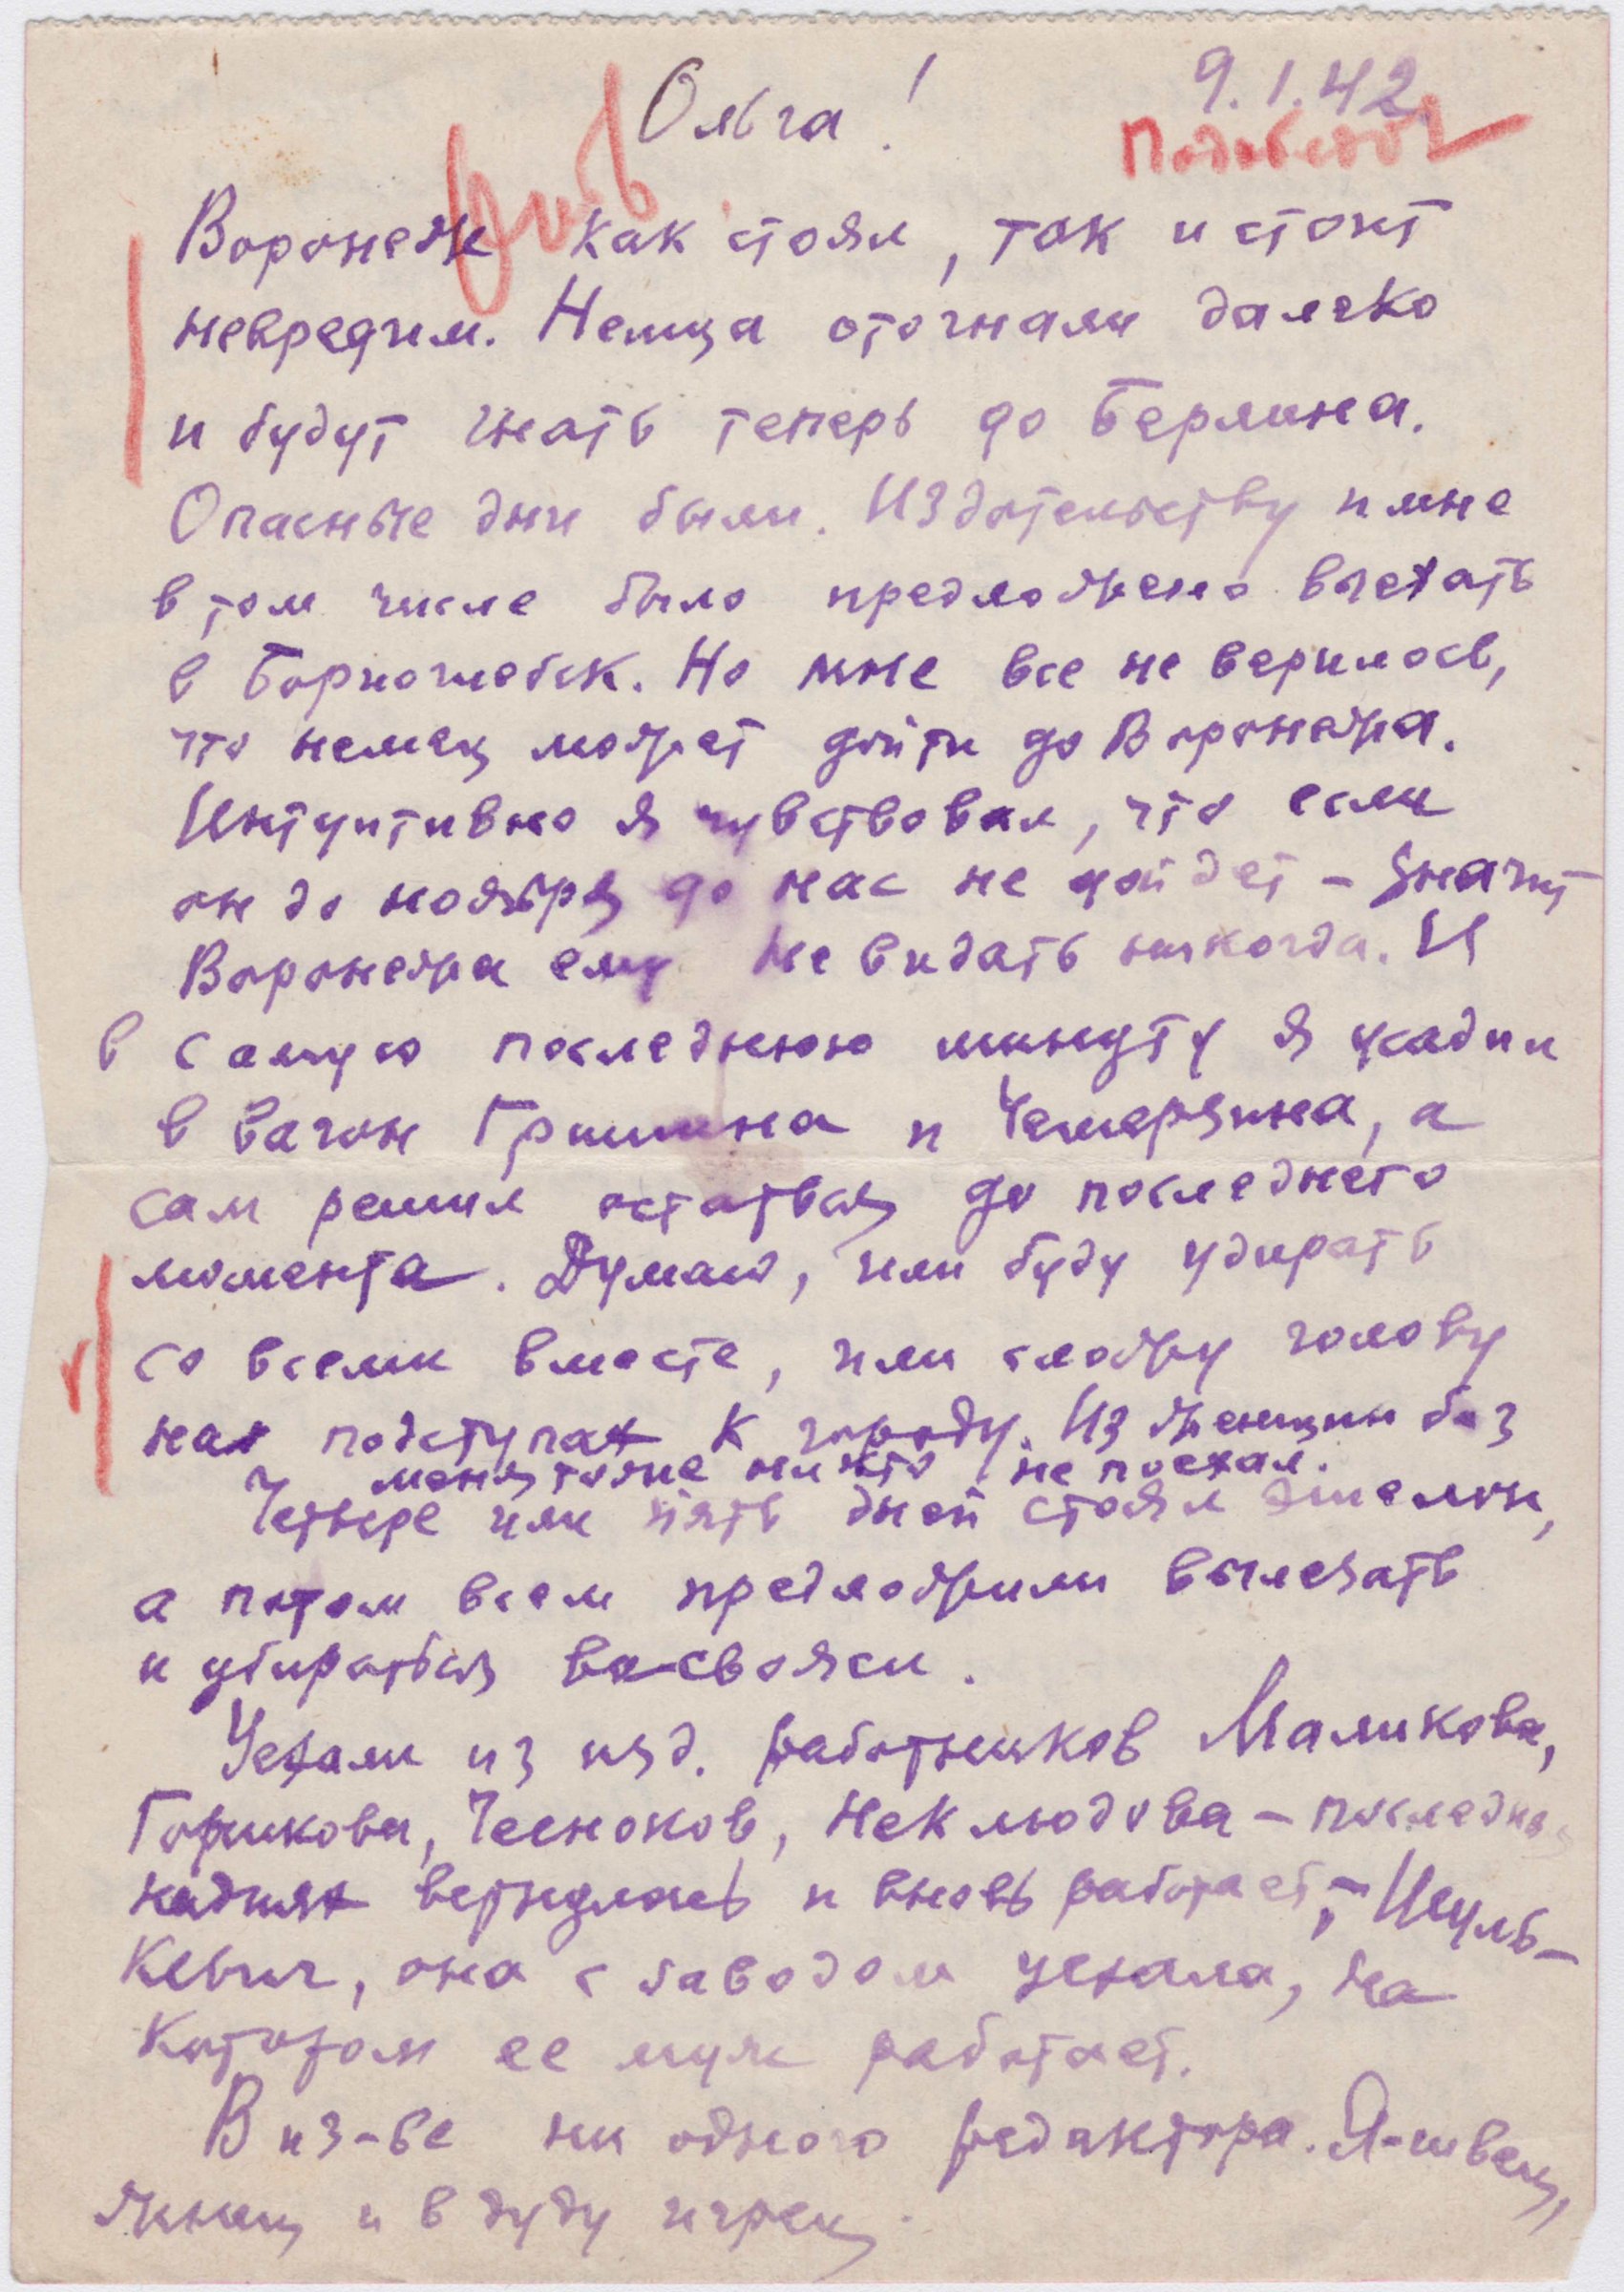 Ольга!
9.1.42
Воронеж как стоял, так и стоит
невредим. Немца отогнали далеко
и будут гнать теперь до Берлина.
Опасные дни были. Издательству и мне
в том числе было предложено выехать
в Борисоглебск. Но мне все не верилось,
что немец может дойти до Воронежа.
Интуитивно я чувствовал, что если
он до ноября до нас не дойдет – значит
Воронежа ему не видать никогда. И
в самую последнюю минуту я усадил
в вагон Гришина и Чемерзина, а
сам решил остаться до последнего
момента. Думаю, или буду удирать
со всеми вместе, или сложу голову
на подступах к городу. Из женщин без
меня тоже никто не поехал.
Четыре или пять дней стоял эшелон,
а потом всем предложили вылезать
и убираться восвояси.
Уехали из изд. работников Маликова,
Горшкова, Чесноков, Неклюдова – последняя
на днях вернулась и вновь работает, – Шуль-
кевич, она с заводом уехала, на
котором ее муж работает.
В из-ве ни одного редактора. Я – швец,
жнец и в дуду игрец.